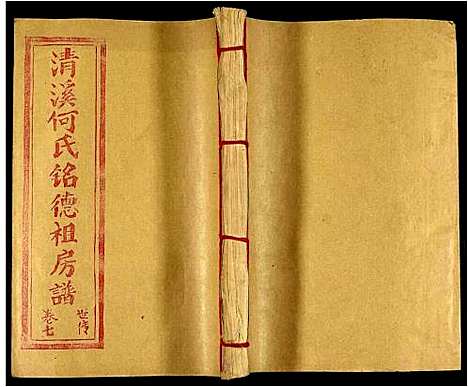 清溪何氏铭德祖房譜
世传
卷七